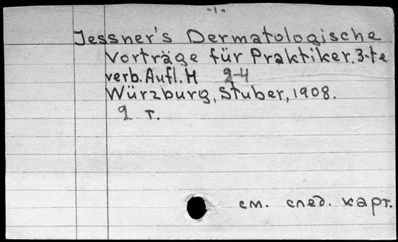 -1-
Jessner's Dermatologische
Vorträge für Praktiker. 3-te
verb. Aufl. H 2-4
Würzburg, Stuber, 1908.
2 т.
см. след. карт.